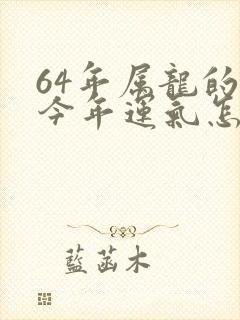 64年属龍的
今年運氣怎
藍菡木